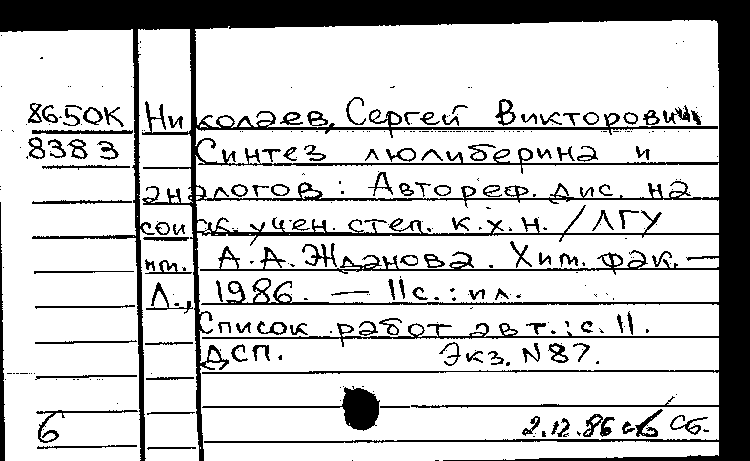 86-50К Николаев, Сергей Викторович
8383 Синтез люлиберина и
аналогов: Автореф. дис. на
соиск. учен. степ. к.х.н. / ЛГУ
им. А.А.Жданова. Хим. фак. —
Л., 1986. — 11с.: ил.
Список работ авт.: с. 11.
ДСП. Экз. N87.
6 2.12.86 Сб.